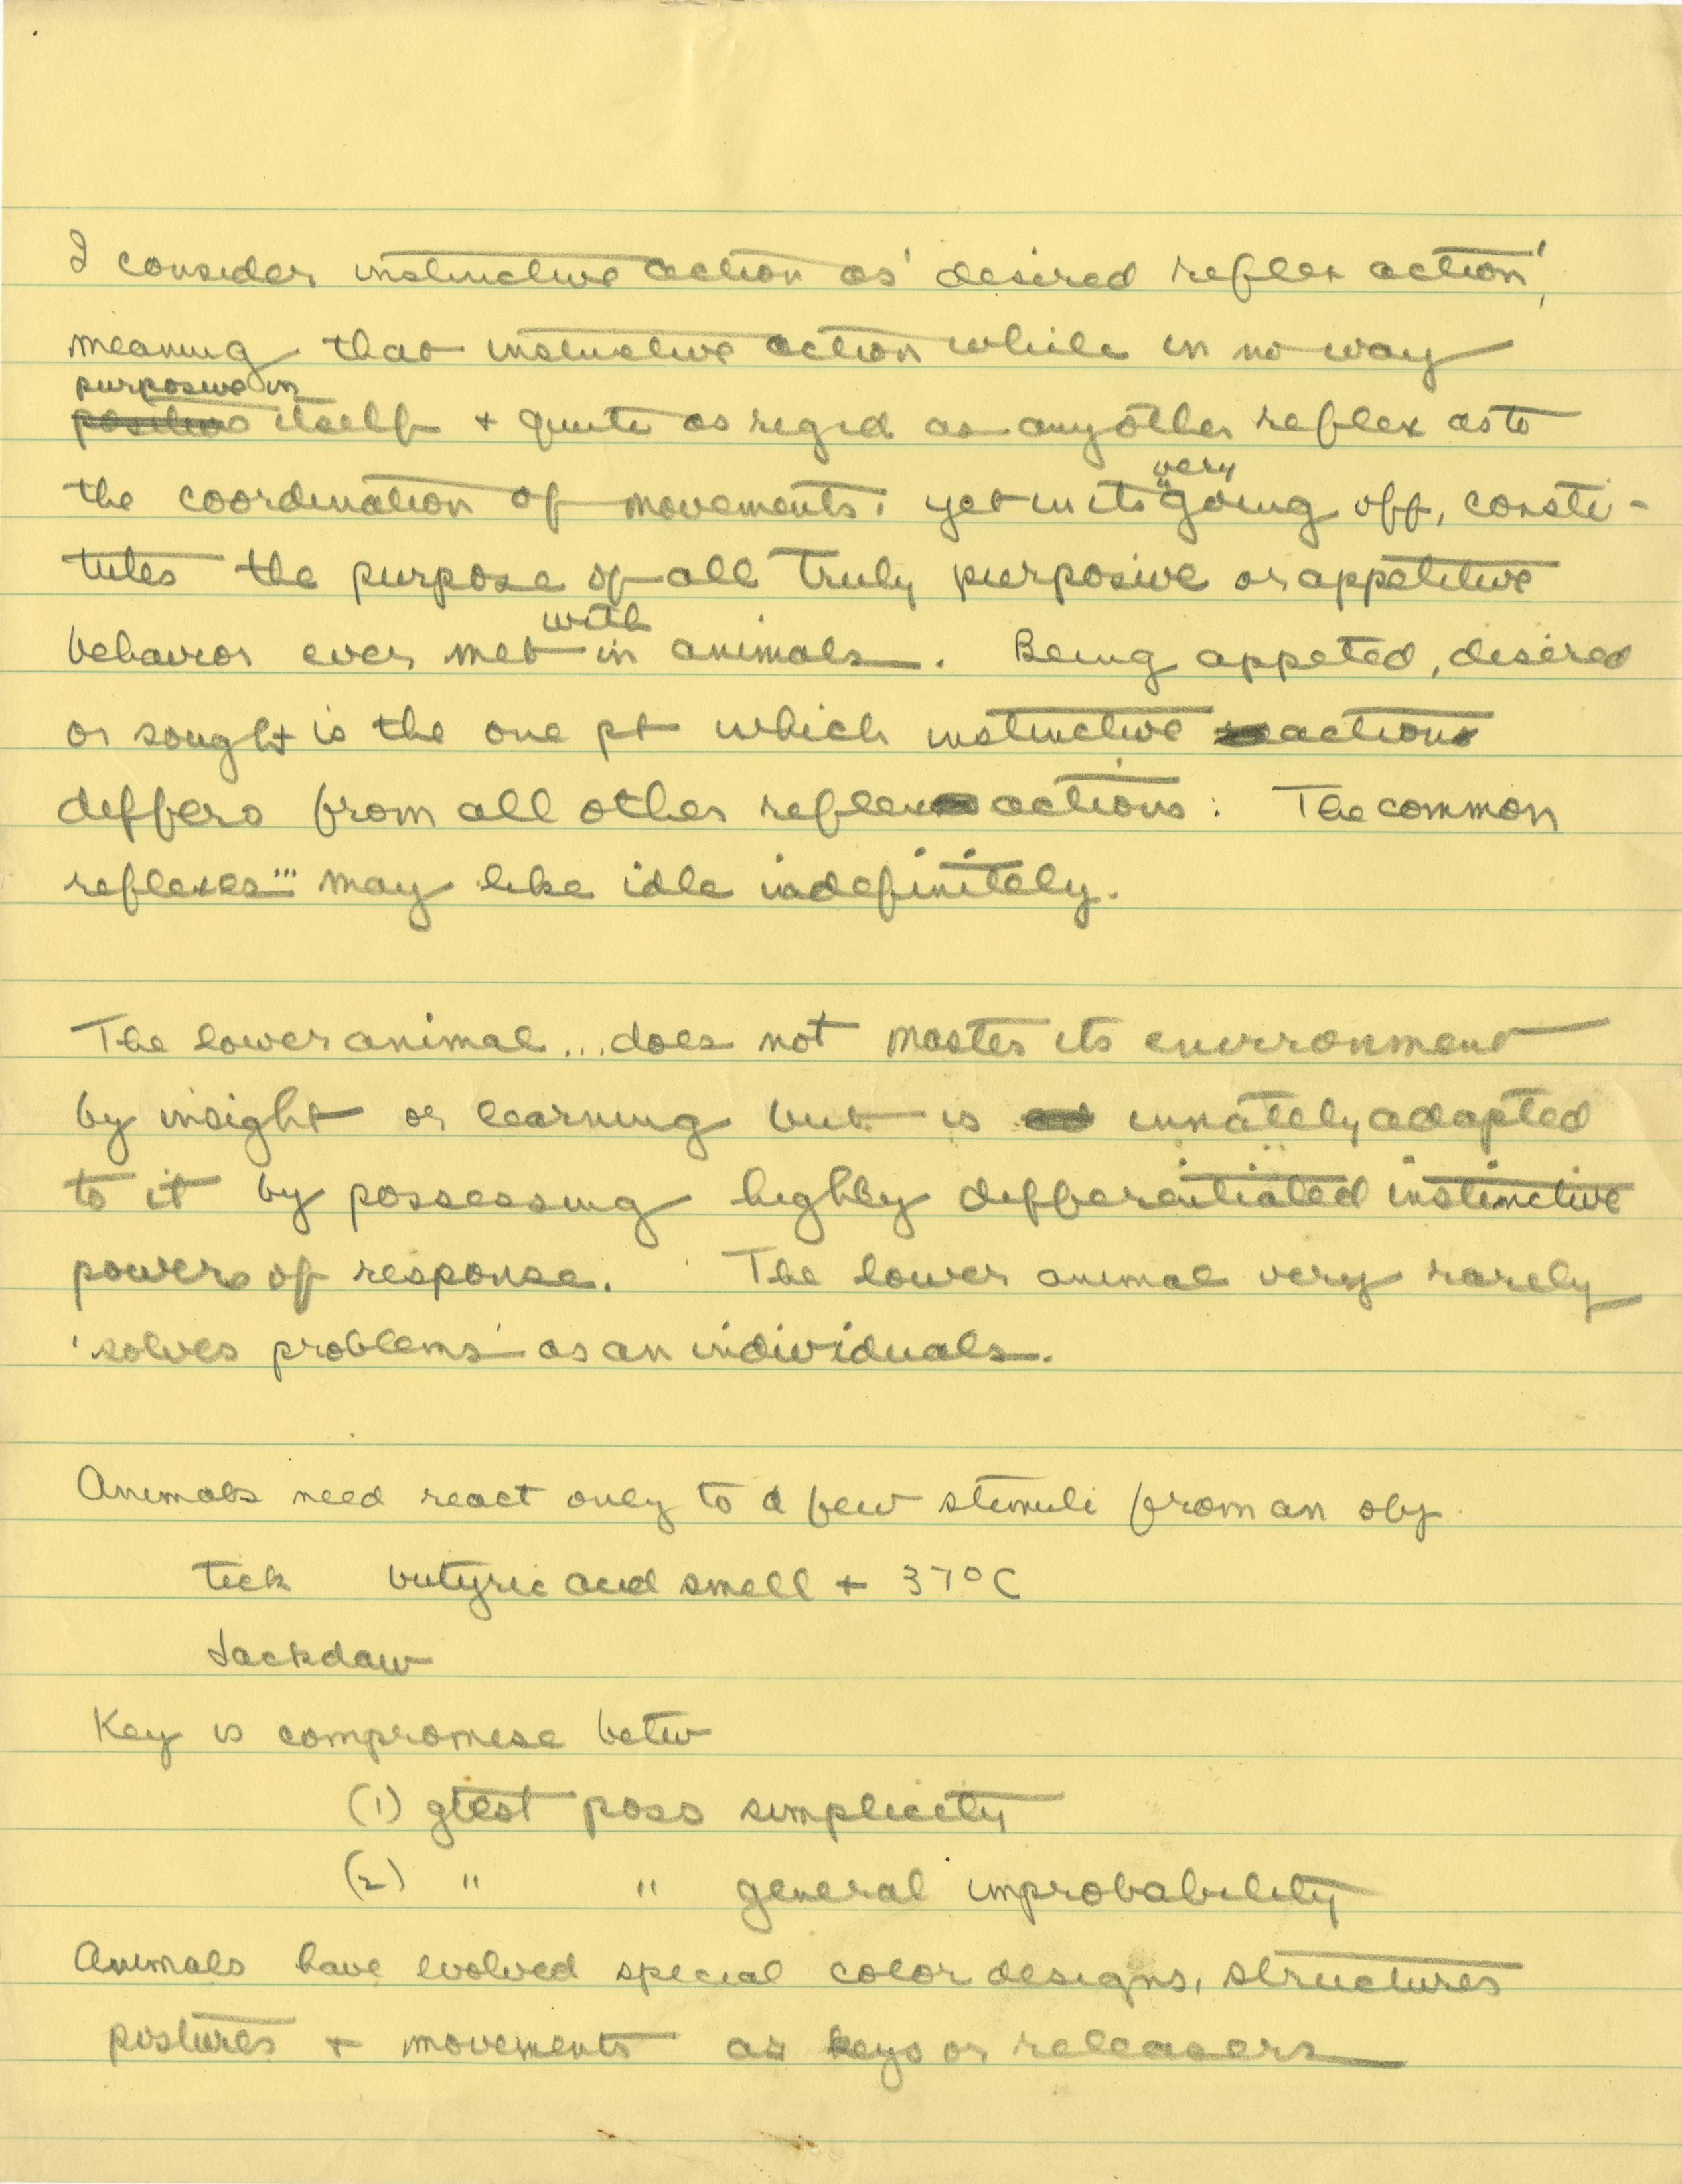 I consider instinctive action as 'desired reflex action',
meaning that instinctive action while in no way
purposive in
itself + quite as rigid as any other reflex as to
very
the coordination of movements, yet in its going off, consti-
tutes the purpose of all truly purposive or appetitive
with
behavior ever met in animals. Being appeted, desired
or sought is the one pt which instinctive actions
differs from all other reflex actions: The common
reflexes"' may like idle indefinitely.
The lower animal ... does not master its environment
by insight or learning but is innately adapted
to it by possessing highly differentiated instinctive
powers of response. The lower animal very rarely
'solves problems' as an individuals.
Animals need react only to a few stimuli from an obj.
tick butyric acid smell + 37°C
Jackdaw
Key is compromise betw
(1) gtest poss simplicity
(2) " " general improbability
Animals have evolved special color designs, structures
postures + movements as keys or releasers